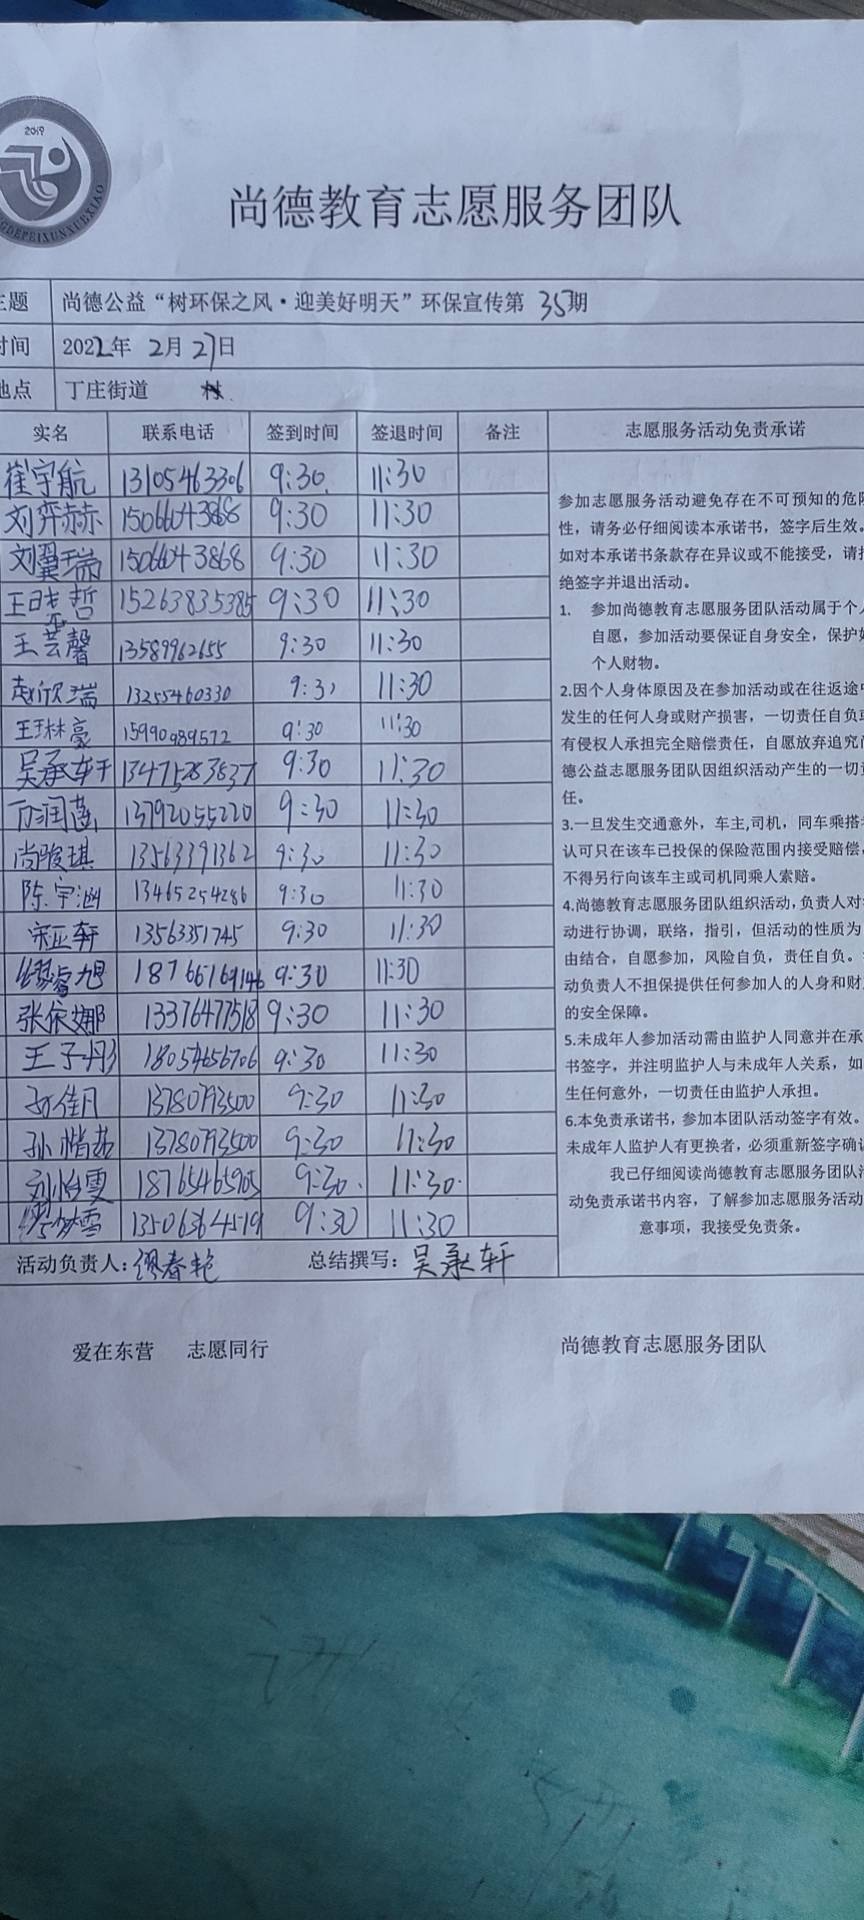 2019
尚德教育志愿服务团队
主题 尚德公益“树环保之风·迎美好明天”环保宣传第 35期
时间 2022年 2月27日
地点 丁庄街道 村
实名 联系电话 签到时间 签退时间 备注 志愿服务活动免责承诺
崔宇航 13105463306 9:30 11:30
刘弈赫 15066043868 9:30 11:30
刘翼瑞 15066043868 9:30 11:30
王晓哲 15263835385 9:30 11:30
王芸馨 13589962655 9:30 11:30
赵欣瑞 13255460330 9:30 11:30
王琳豪 15990989572 9:30 11:30
吴承轩 13475283837 9:30 11:30
润 13792055220 9:30 11:30
尚骏琪 13563391362 9:30 11:30
陈宇涵 13465254286 9:30 11:30
宋亚轩 13563351745 9:30 11:30
缪睿旭 18766169146 9:30 11:30
张依娜 13376477518 9:30 11:30
王子彤 18054656706 9:30 11:30
孙佳月 13780793500 9:30 11:30
孙楷茹 13780793500 9:30 11:30
刘怡雯 18765465905 9:30 11:30
缪梦雪 13506364519 9:30 11:30
活动负责人:缪春艳 总结撰写:吴承轩
参加志愿服务活动避免存在不可预知的危险
性，请务必仔细阅读本承诺书，签字后生效。
如对本承诺书条款存在异议或不能接受，请拒
绝签字并退出活动。
1. 参加尚德教育志愿服务团队活动属于个人
自愿，参加活动要保证自身安全，保护好
个人财物。
2.因个人身体原因及在参加活动或在往返途中
发生的任何人身或财产损害，一切责任自负或
有侵权人承担完全赔偿责任，自愿放弃追究尚
德公益志愿服务团队因组织活动产生的一切责
任。
3.一旦发生交通意外，车主,司机，同车乘搭者
认可只在该车已投保的保险范围内接受赔偿，
不得另行向该车主或司机同乘人索赔。
4.尚德教育志愿服务团队组织活动,负责人对
动进行协调，联络，指引，但活动的性质为
由结合，自愿参加，风险自负，责任自负。
动负责人不担保提供任何参加人的人身和财
的安全保障。
5.未成年人参加活动需由监护人同意并在承
书签字，并注明监护人与未成年人关系，如
生任何意外，一切责任由监护人承担。
6.本免责承诺书，参加本团队活动签字有效。
未成年人监护人有更换者，必须重新签字确认
我已仔细阅读尚德教育志愿服务团队活
动免责承诺书内容，了解参加志愿服务活动
意事项，我接受免责条。
爱在东营 志愿同行 尚德教育志愿服务团队